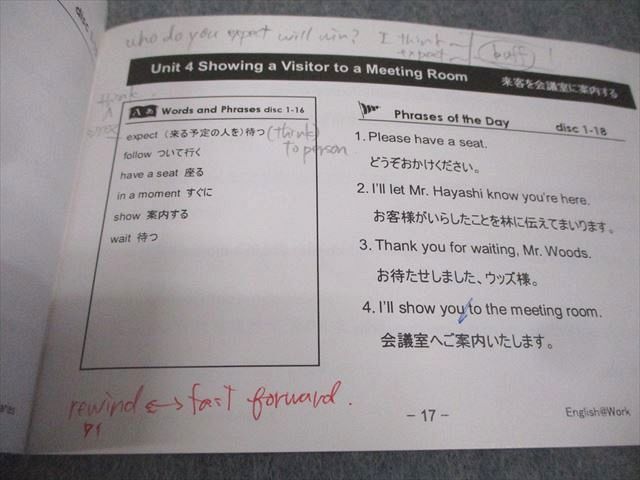 who do you expect will win? I think
expect
Unit 4 Showing a Visitor to a Meeting Room 来客を会議室に案内する
Words and Phrases disc 1-16
expect (来る予定の人を)待つ (think)
to person
follow ついて行く
have a seat 座る
in a moment すぐに
show 案内する
wait 待つ
Phrases of the Day disc 1-18
1. Please have a seat.
どうぞおかけください。
2. I'll let Mr. Hayashi know you're here.
お客様がいらしたことを林に伝えてまいります。
3. Thank you for waiting, Mr. Woods.
お待たせしました、ウッズ様。
4. I'll show you to the meeting room.
会議室へご案内いたします。
rewind ↔ fast forward.
- 17 -
English@Work